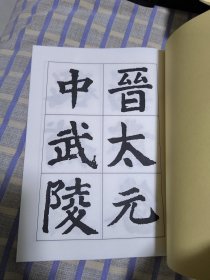 晉太元
中武陵